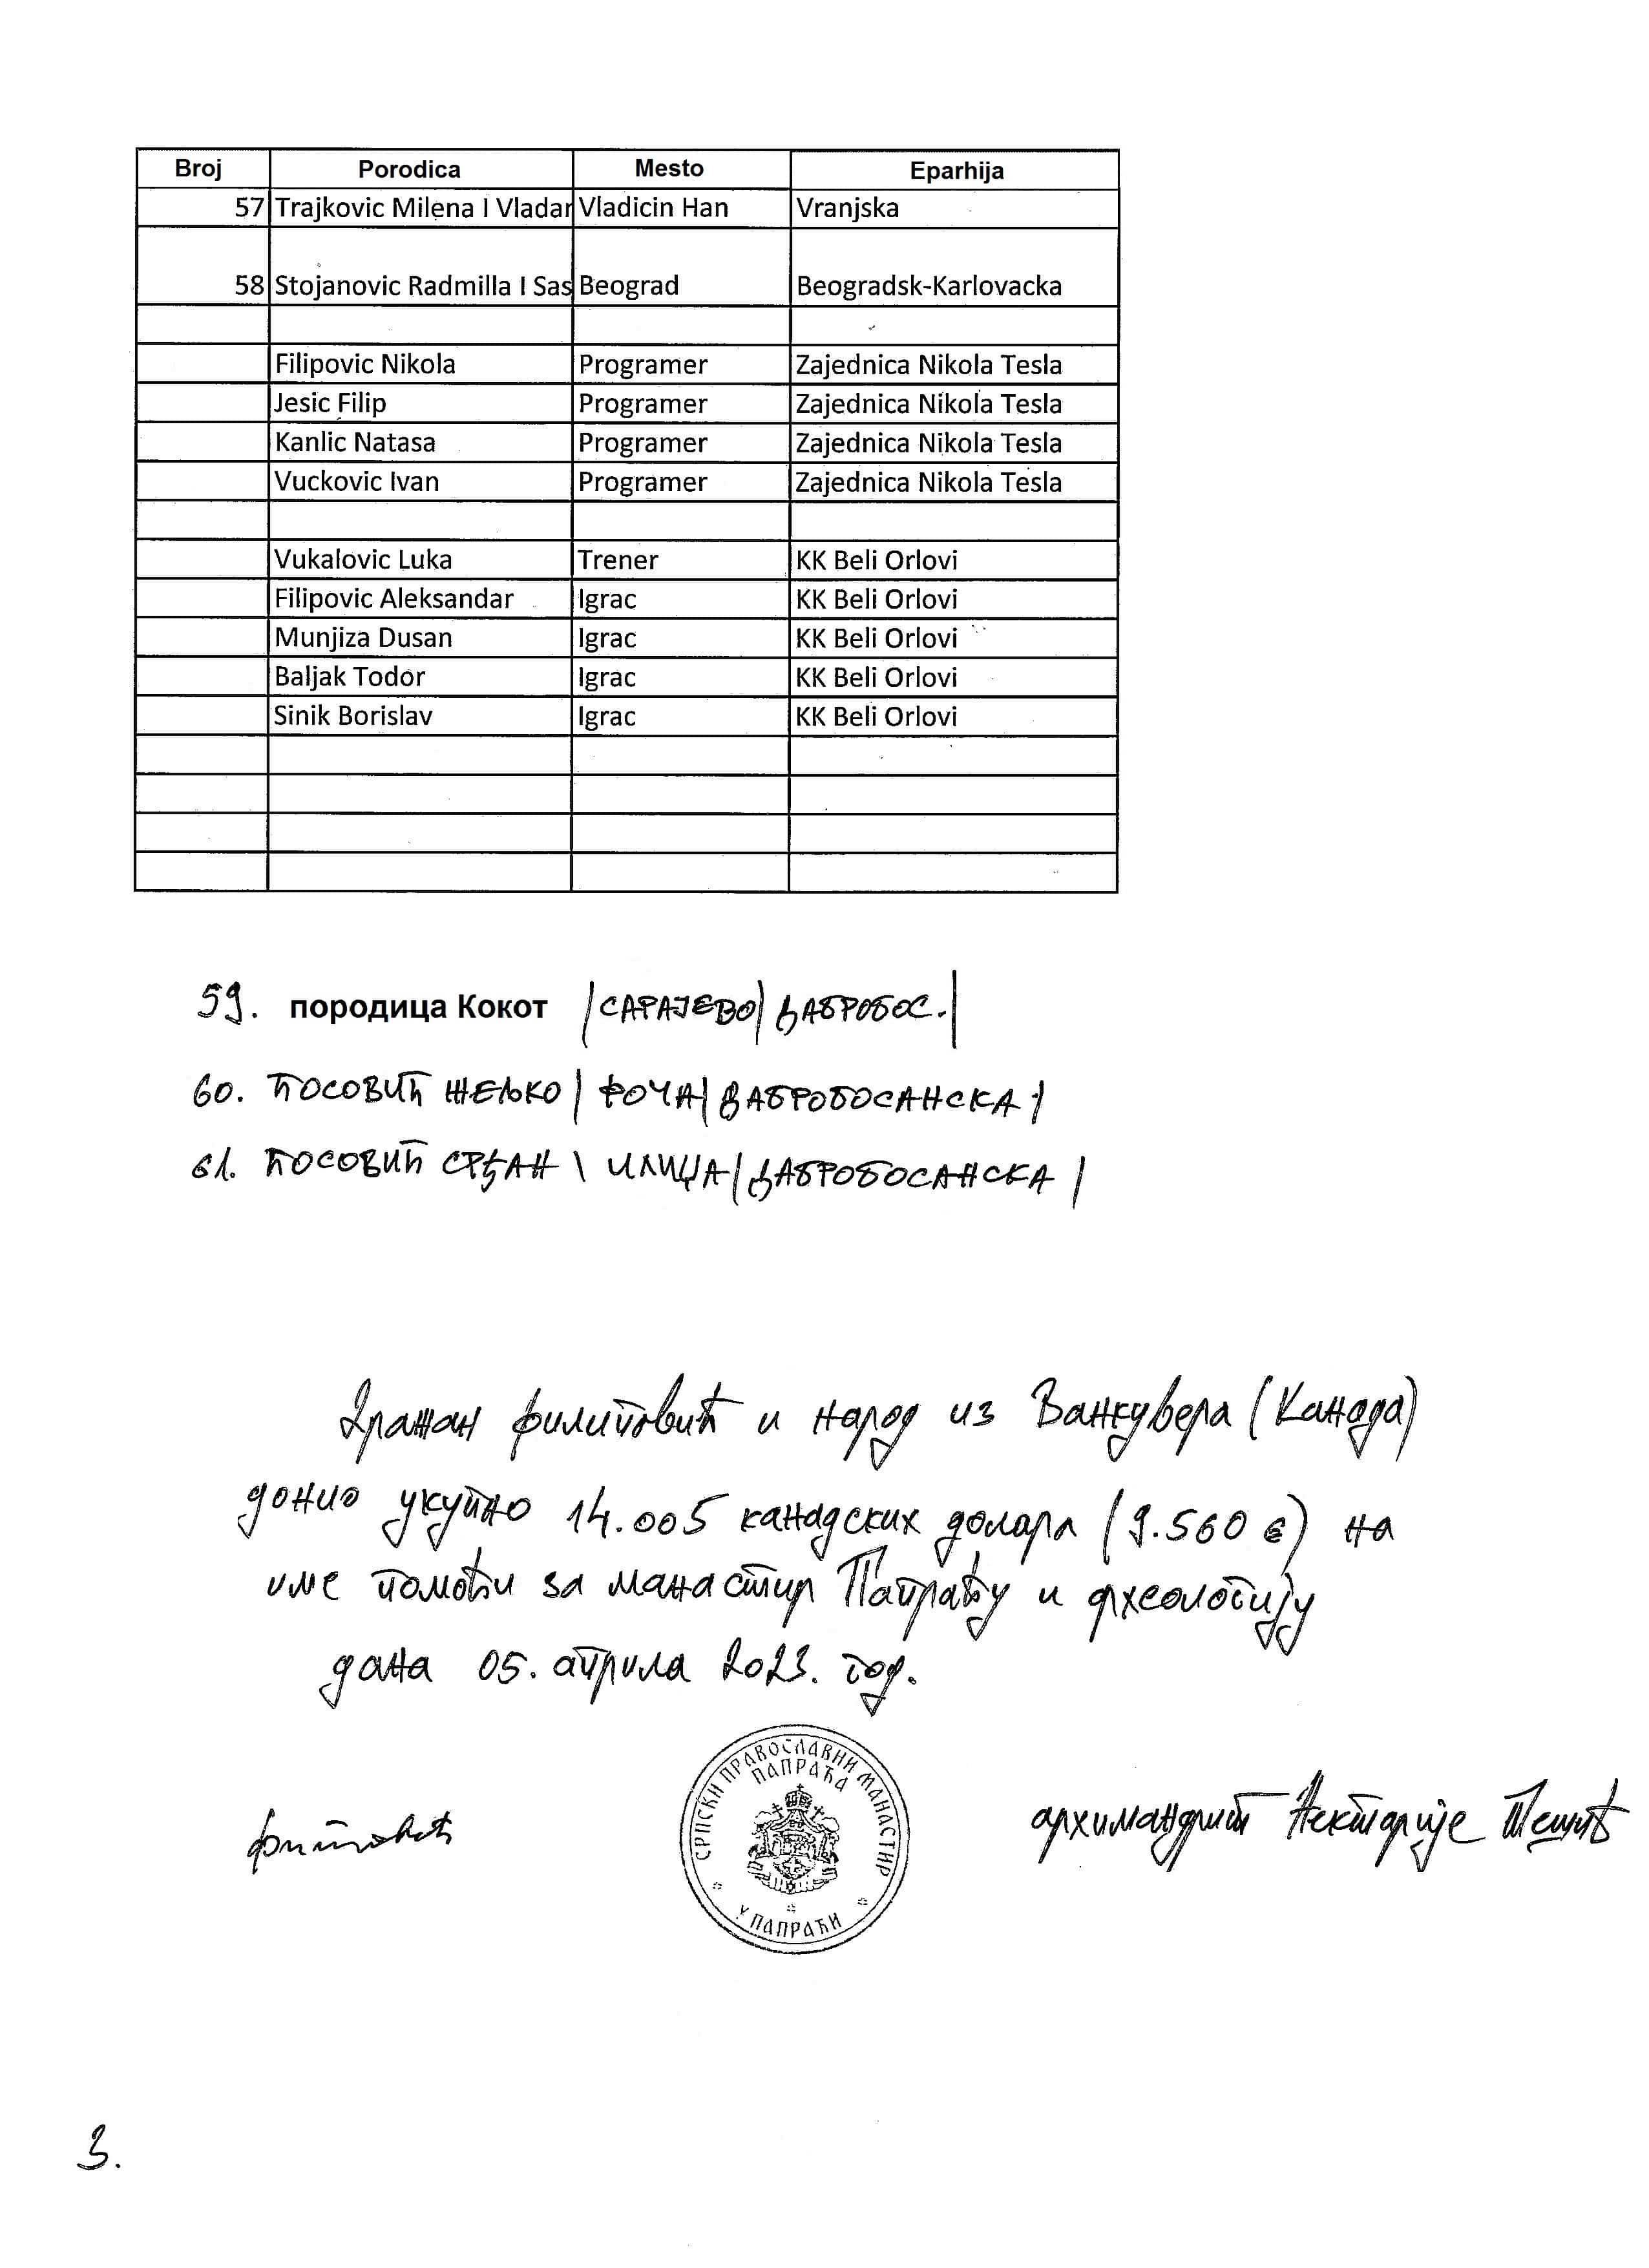 Broj Porodica Mesto Eparhija
57 Trajkovic Milena I Vladan Vladicin Han Vranjska
58 Stojanovic Radmilla I Sas Beograd Beogradsk-Karlovacka
Filipovic Nikola Programer Zajednica Nikola Tesla
Jesic Filip Programer Zajednica Nikola Tesla
Kanlic Natasa Programer Zajednica Nikola Tesla
Vuckovic Ivan Programer Zajednica Nikola Tesla
Vukalovic Luka Trener KK Beli Orlovi
Filipovic Aleksandar Igrac KK Beli Orlovi
Munjiza Dusan Igrac KK Beli Orlovi
Baljak Todor Igrac KK Beli Orlovi
Sinik Borislav Igrac KK Beli Orlovi
59. породица Кокот |САРАЈЕВО| ДАБРОБОС.|
60. ЋОСОВИЋ ЖЕЉКО | ФОЧА | ДАБРОБОСАНСКА |
61. ЋОСОВИЋ СРЂАН \ ИЛИЏА | ДАБРОБОСАНСКА |
Дражан Филиповић и народ из Ванкувера (Канада)
донио укупно 14.005 канадских долара (9.560 €) на
име помоћи за манастир Папраћу и археологију
дана 05. априла 2023. год.
СРПСКИ ПРАВОСЛАВНИ МАНАСТИР
ПАПРАЋА
У ПАПРАЋИ
архимандрит Нектарије Тешић
3.